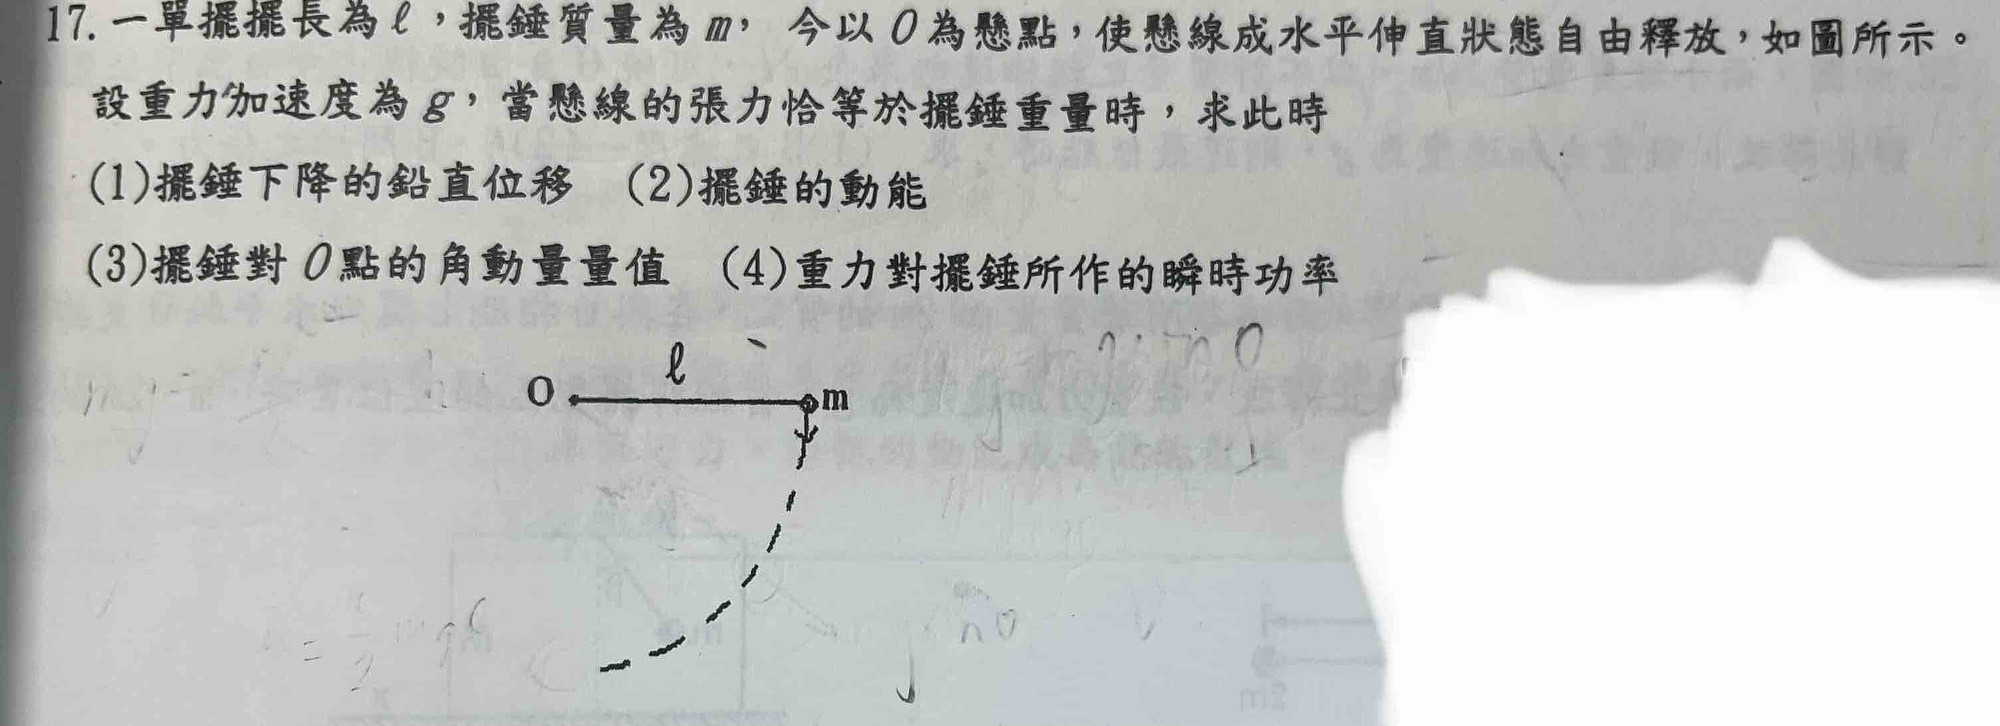 17. 一單擺擺長為ℓ，擺錘質量為m，今以O為懸點，使懸線成水平伸直狀態自由釋放，如圖所示。
設重力加速度為g，當懸線的張力恰等於擺錘重量時，求此時
(1)擺錘下降的鉛直位移 (2)擺錘的動能
(3)擺錘對O點的角動量量值 (4)重力對擺錘所作的瞬時功率
ℓ
O m